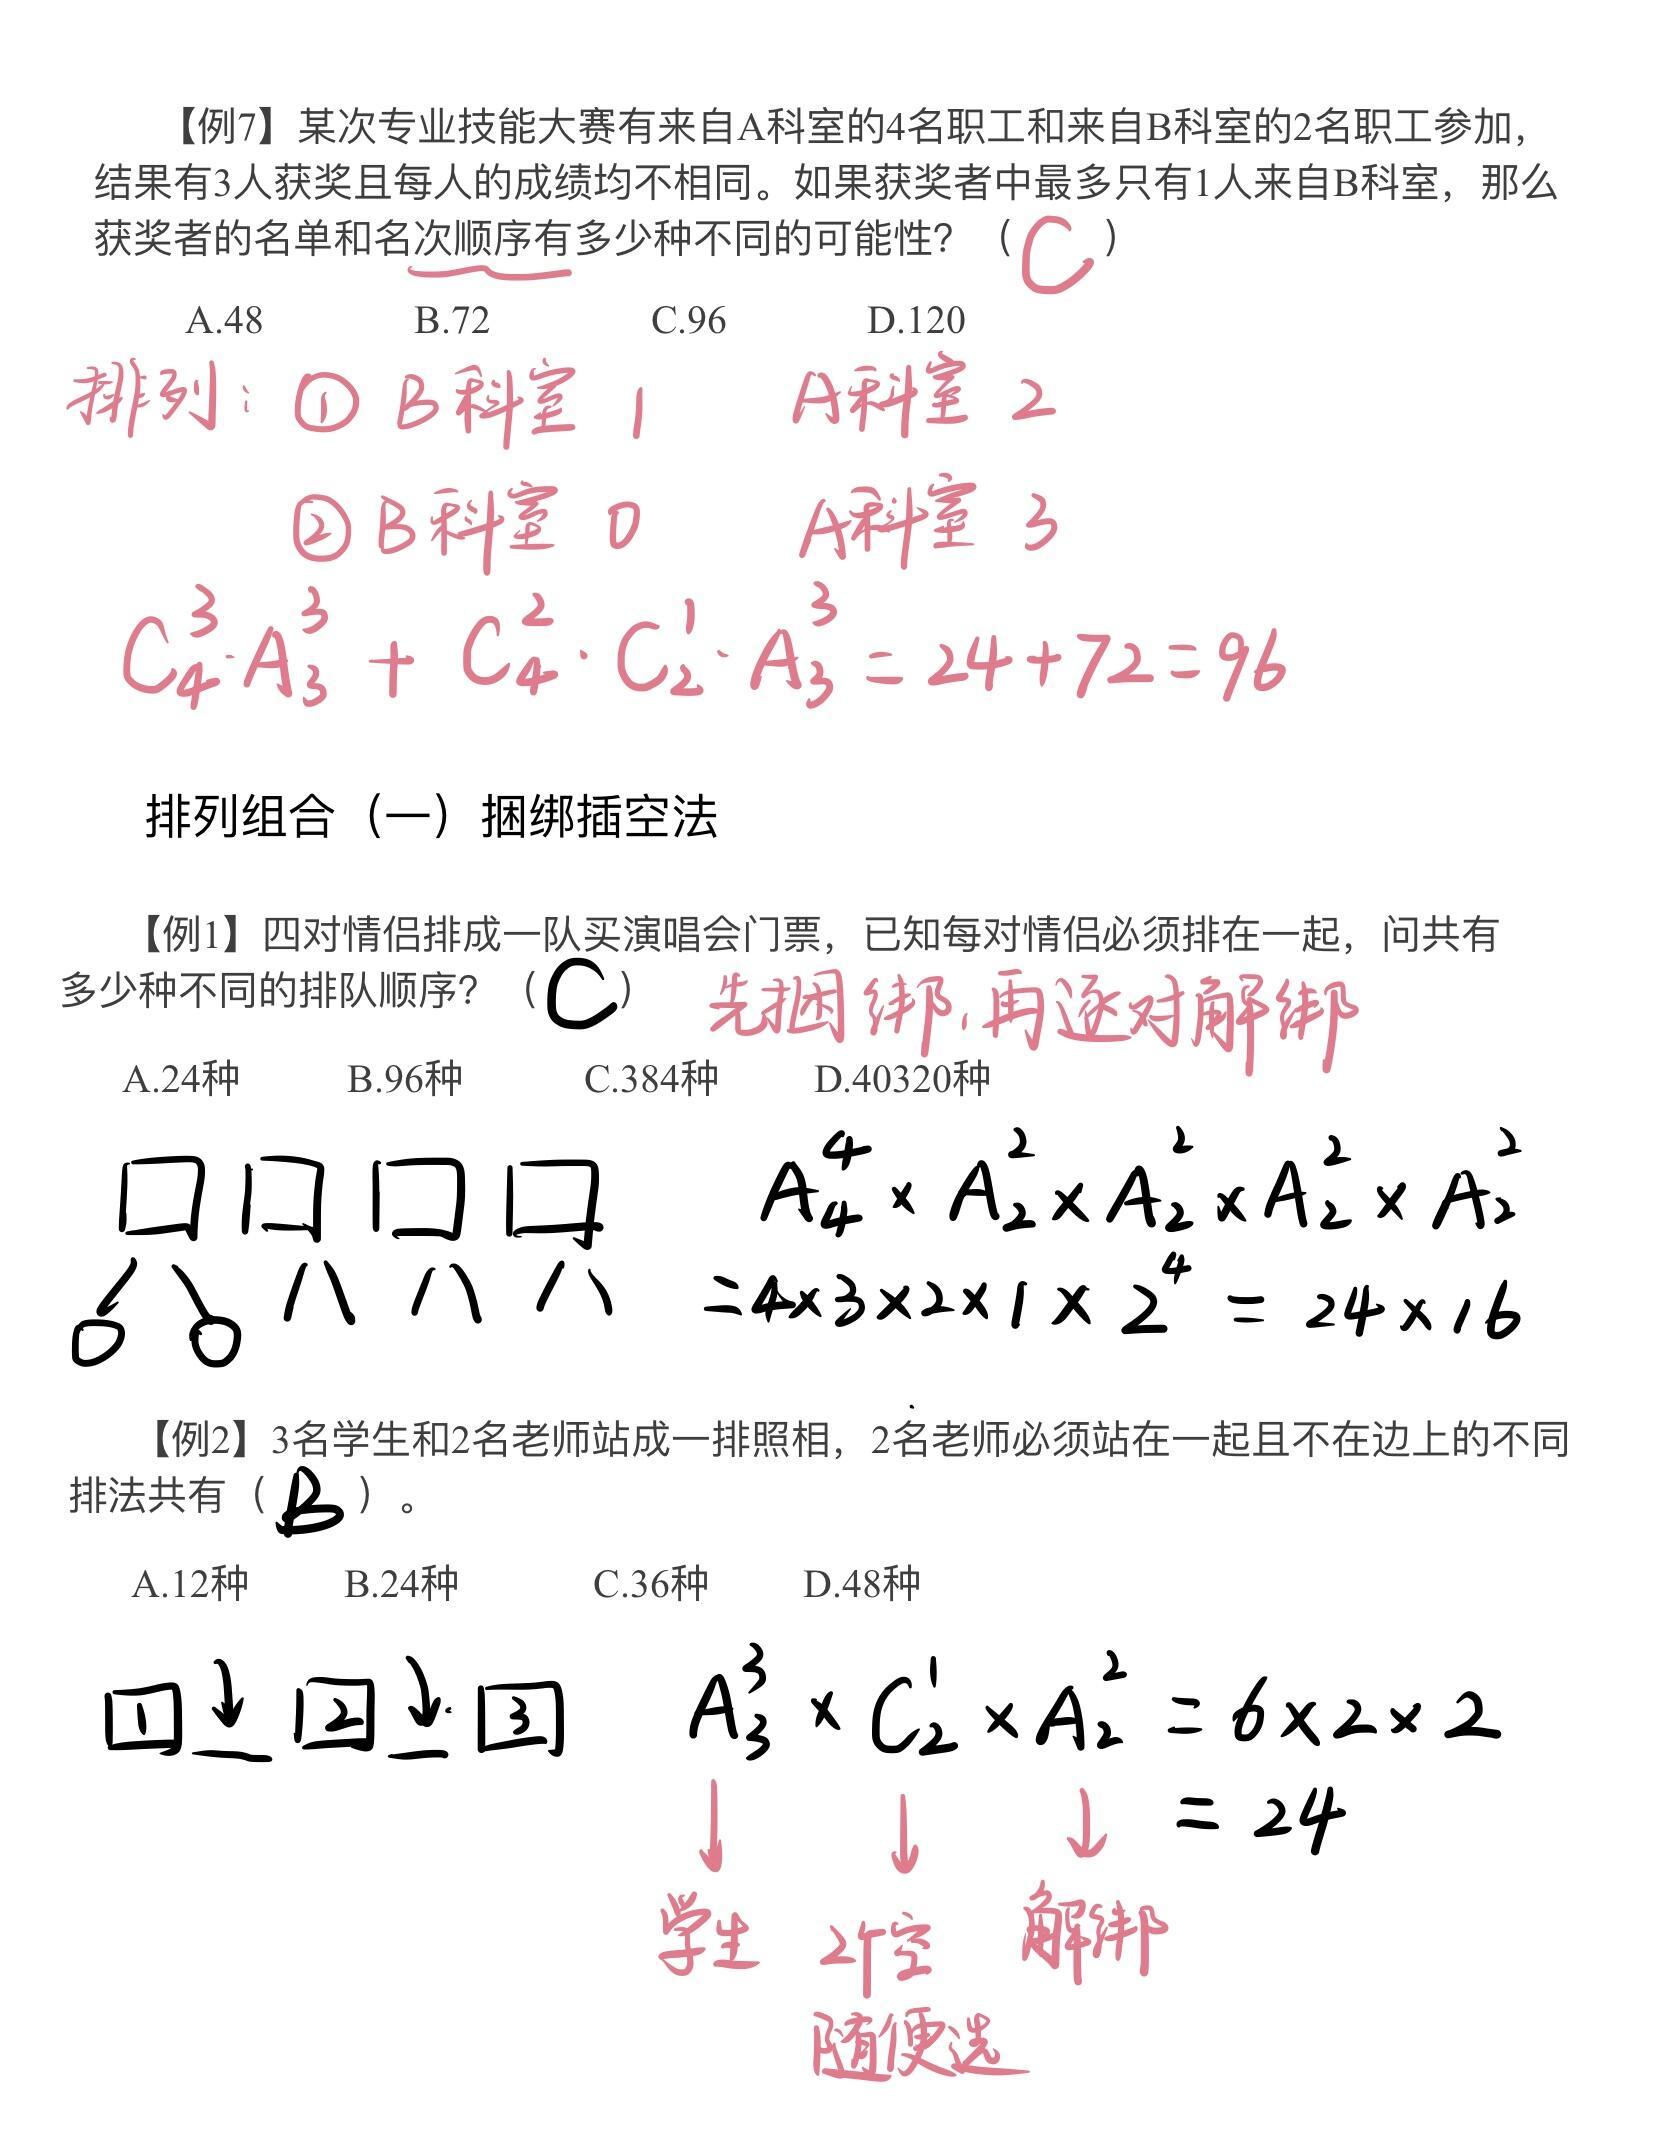 【例7】某次专业技能大赛有来自A科室的4名职工和来自B科室的2名职工参加，
结果有3人获奖且每人的成绩均不相同。如果获奖者中最多只有1人来自B科室，那么
获奖者的名单和名次顺序有多少种不同的可能性？（ C ）
A.48 B.72 C.96 D.120
排列：① B科室 1 A科室 2
② B科室 0 A科室 3
C₄³·A₃³ + C₄²·C₂¹·A₃³ = 24+72=96
排列组合（一）捆绑插空法
【例1】四对情侣排成一队买演唱会门票，已知每对情侣必须排在一起，问共有
多少种不同的排队顺序？（ C ） 先捆绑，再逐对解绑
A.24种 B.96种 C.384种 D.40320种
A₄⁴ × A₂² × A₂² × A₂² × A₂²
=4×3×2×1×2⁴ = 24×16
【例2】3名学生和2名老师站成一排照相，2名老师必须站在一起且不在边上的不同
排法共有（ B ）。
A.12种 B.24种 C.36种 D.48种
1 2 3 A₃³ × C₂¹ × A₂² = 6×2×2
= 24
学生 2个空 解绑
随便选